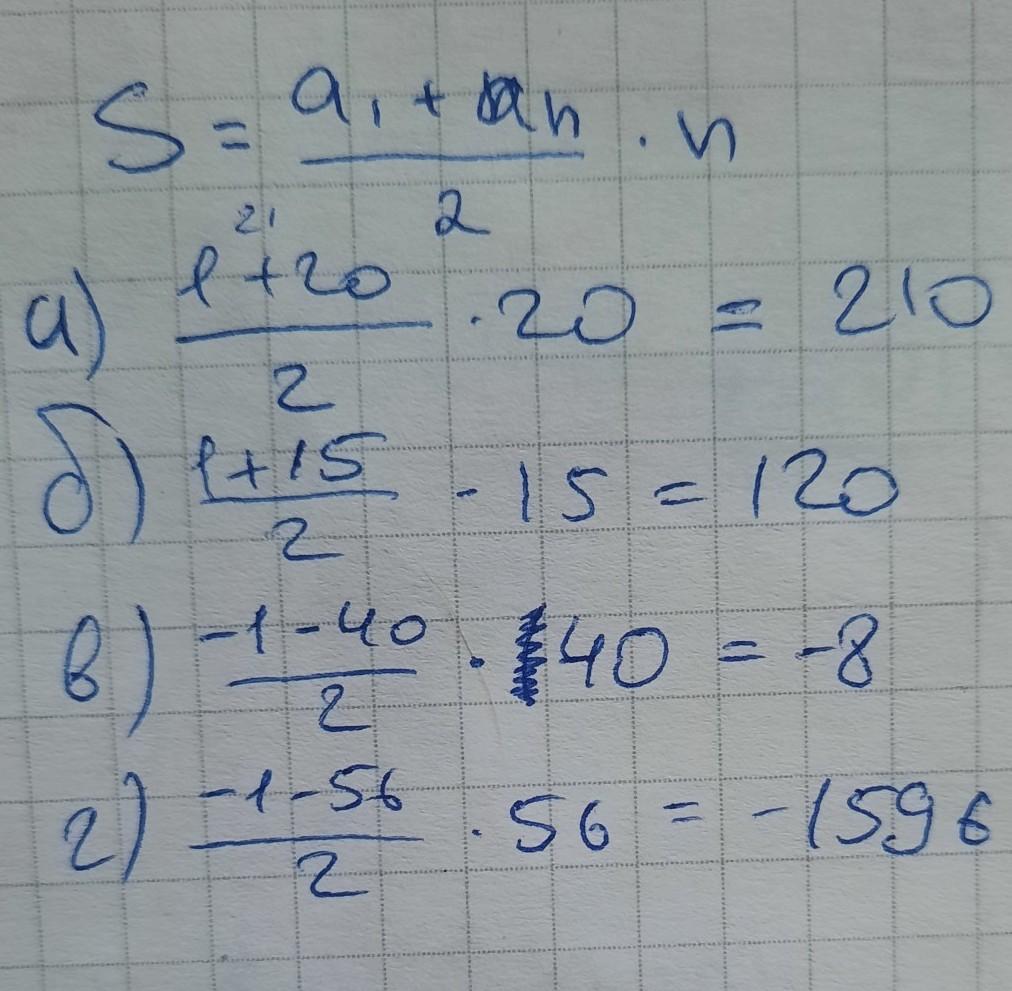 S = (a₁ + aₙ)/2 · n
21
а) (1+20)/2 · 20 = 210
б) (1+15)/2 · 15 = 120
в) (-1-40)/2 · 40 = -8
г) (-1-56)/2 · 56 = -1596